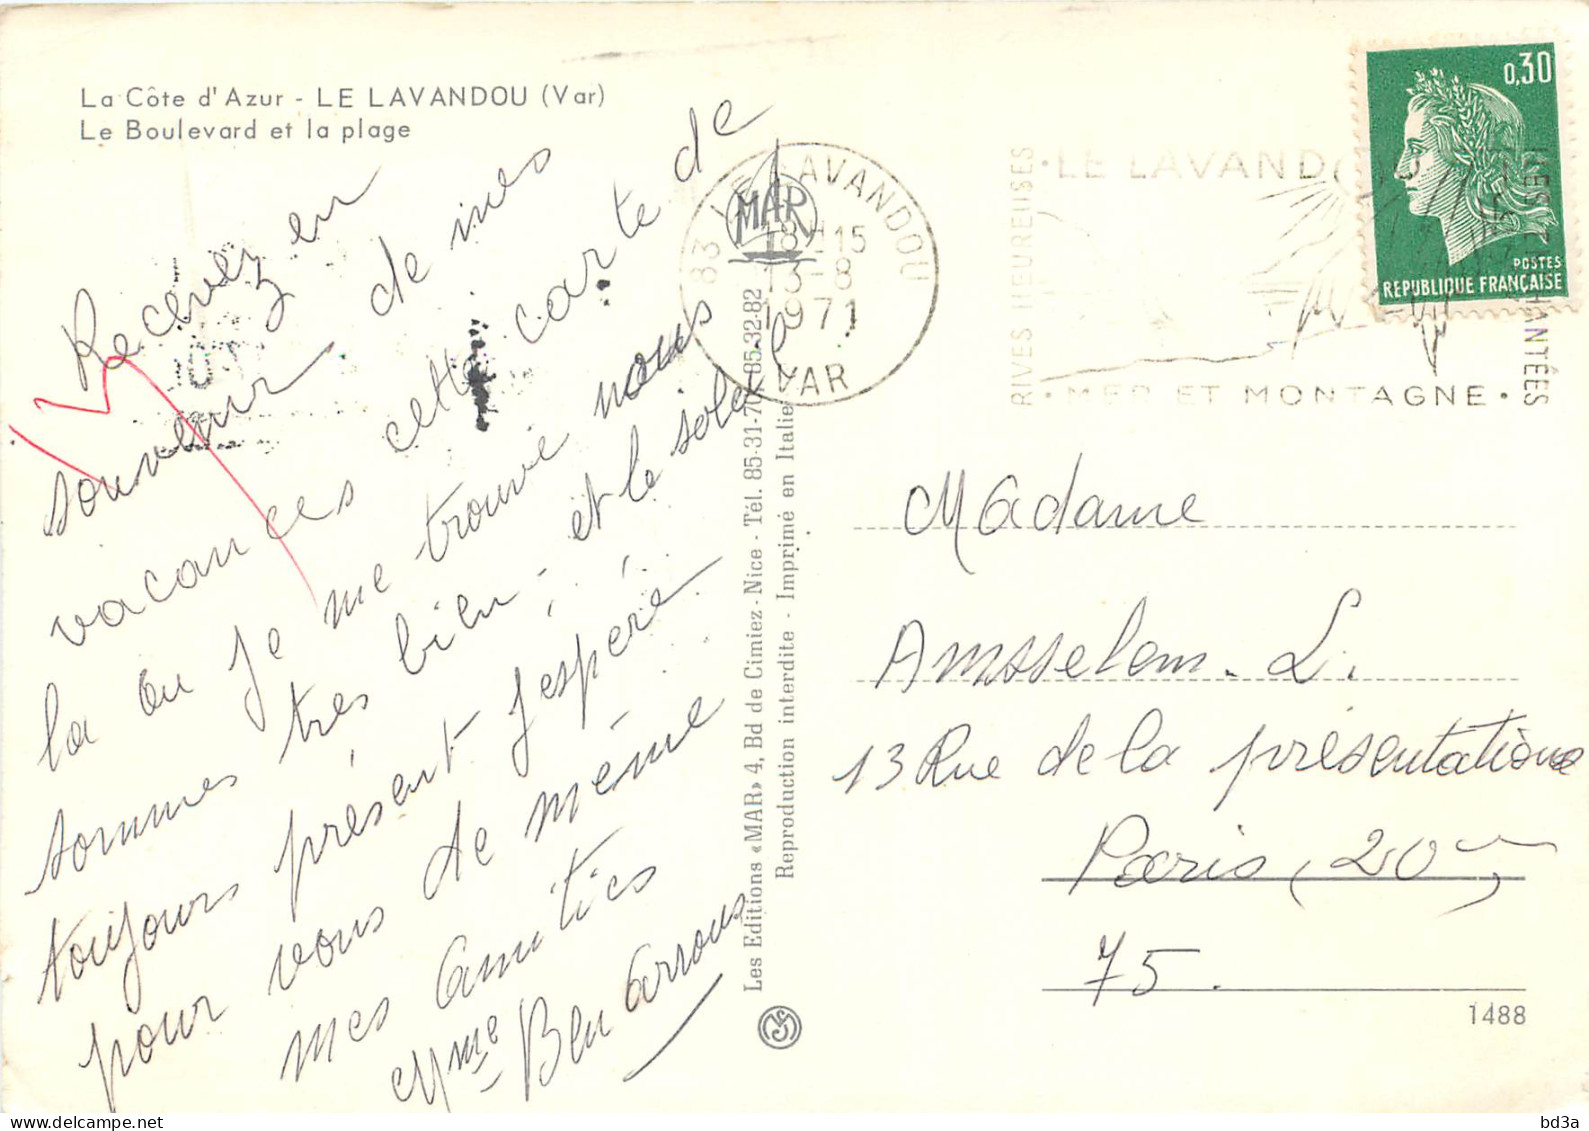 La Côte d'Azur - LE LAVANDOU (Var)
Le Boulevard et la plage
Recevez en
souvenir de mes
vacances cette carte de
la ou je me trouve nous
sommes très bien, et le soleil
toujours présent j'espére
pour vous de même
mes Amitiés
Mme Ben Arrous
Les Editions «MAR» 4, Bd de Cimiez - Nice - Tél. 85-31-7 85-32-82
Reproduction interdite - Imprimé en Italie
MAR
83 LE LAVANDOU
18H15
13-8
1971
VAR
RIVES HEUREUSES
• LE LAVANDOU
• MER ET MONTAGNE •
ILES ENCHANTÉES
0,30
POSTES
REPUBLIQUE FRANÇAISE
Madame
Amsselem. L.
13 Rue de la présentatione
Paris, 20
75.
1488
bd3a